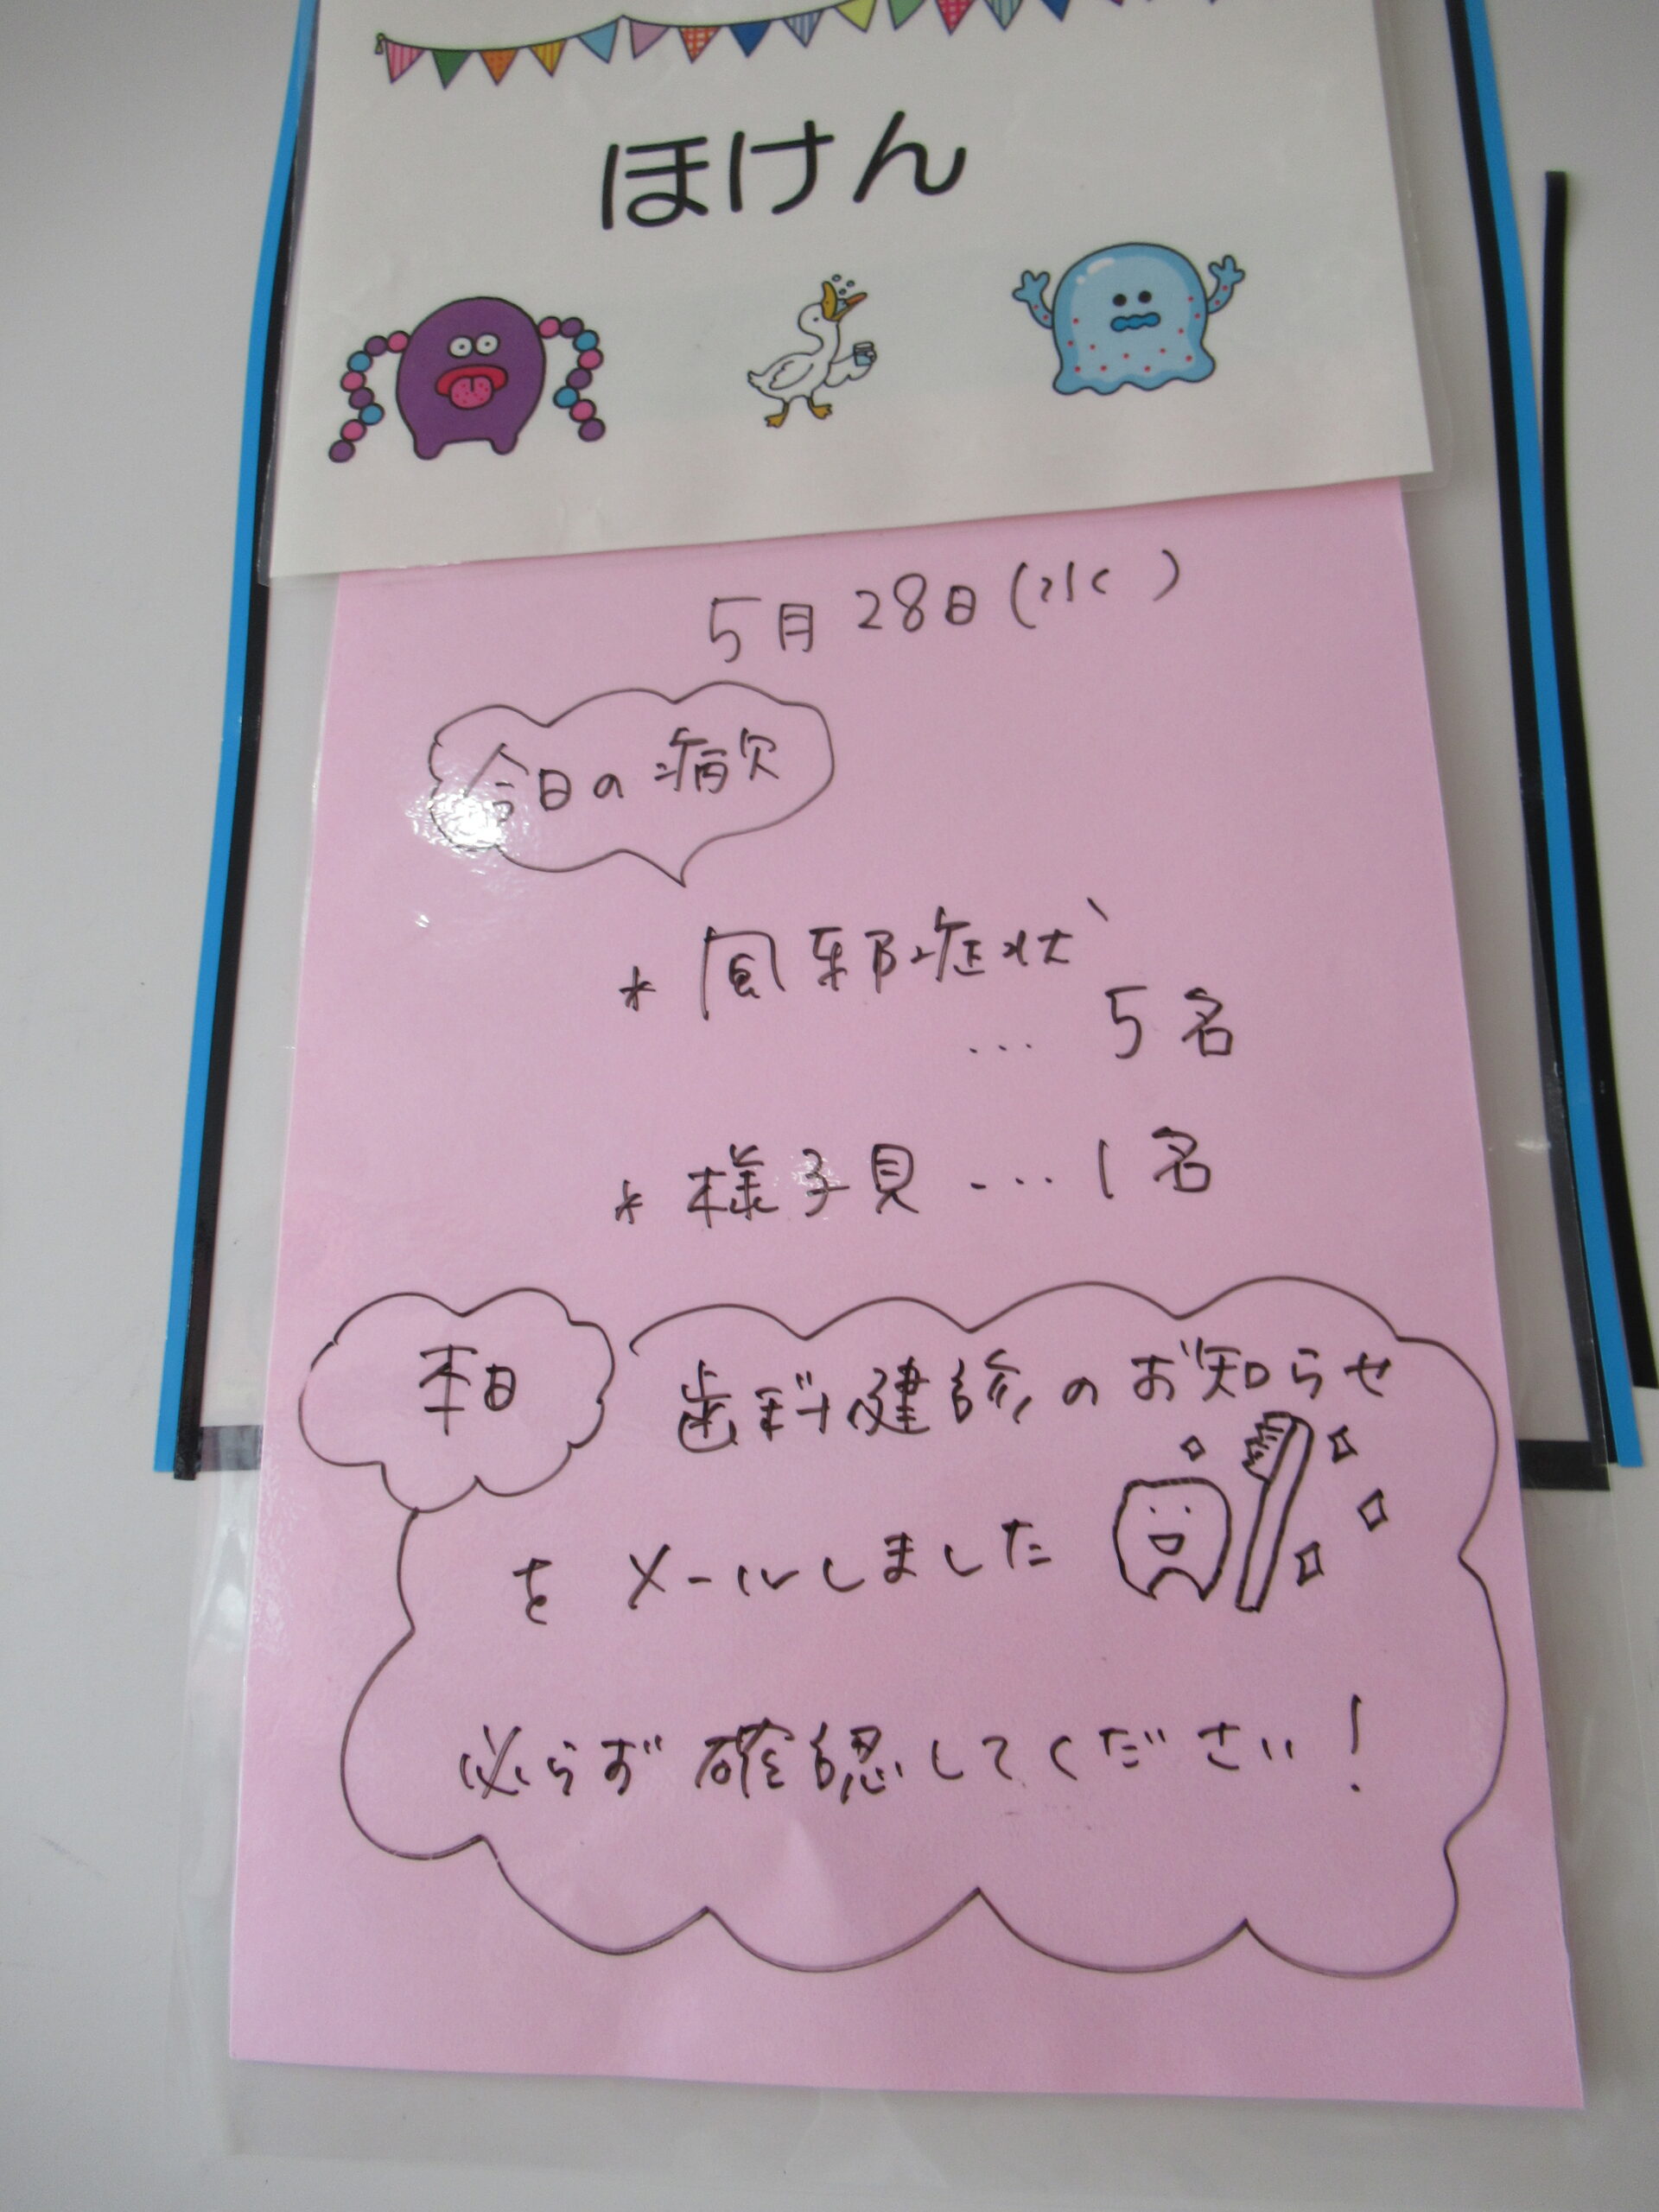 ほけん
5月28日(水)
今日の病欠
* 風邪症状
... 5名
* 様子見 ... 1名
本日
歯科健診のお知らせ
を メールしました
必らず確認してください!